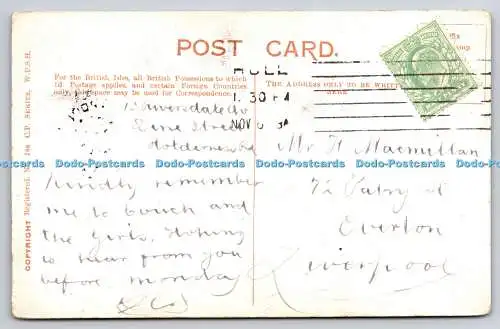 POST CARD.
For the British Isles, all British Possessions to which
½d Postage applies, and certain Foreign Countries
only, this space may be used for Correspondence.
THE ADDRESS ONLY TO BE WRITTEN
HERE
HULL
1.30 PM
NOV 6
COPYRIGHT Registered.
C.P. SERIES, W.P.S.H.
Street
Holderness Rd
Kindly remember
me to Couch and
the Girls. Hoping
to hear from you
before Monday
Mr H Macmillan
72 St
Everton
Liverpool
Dodo-Postcards Dodo-Postcards Dodo-Postcards Dodo-Postcards Dodo-Postcards